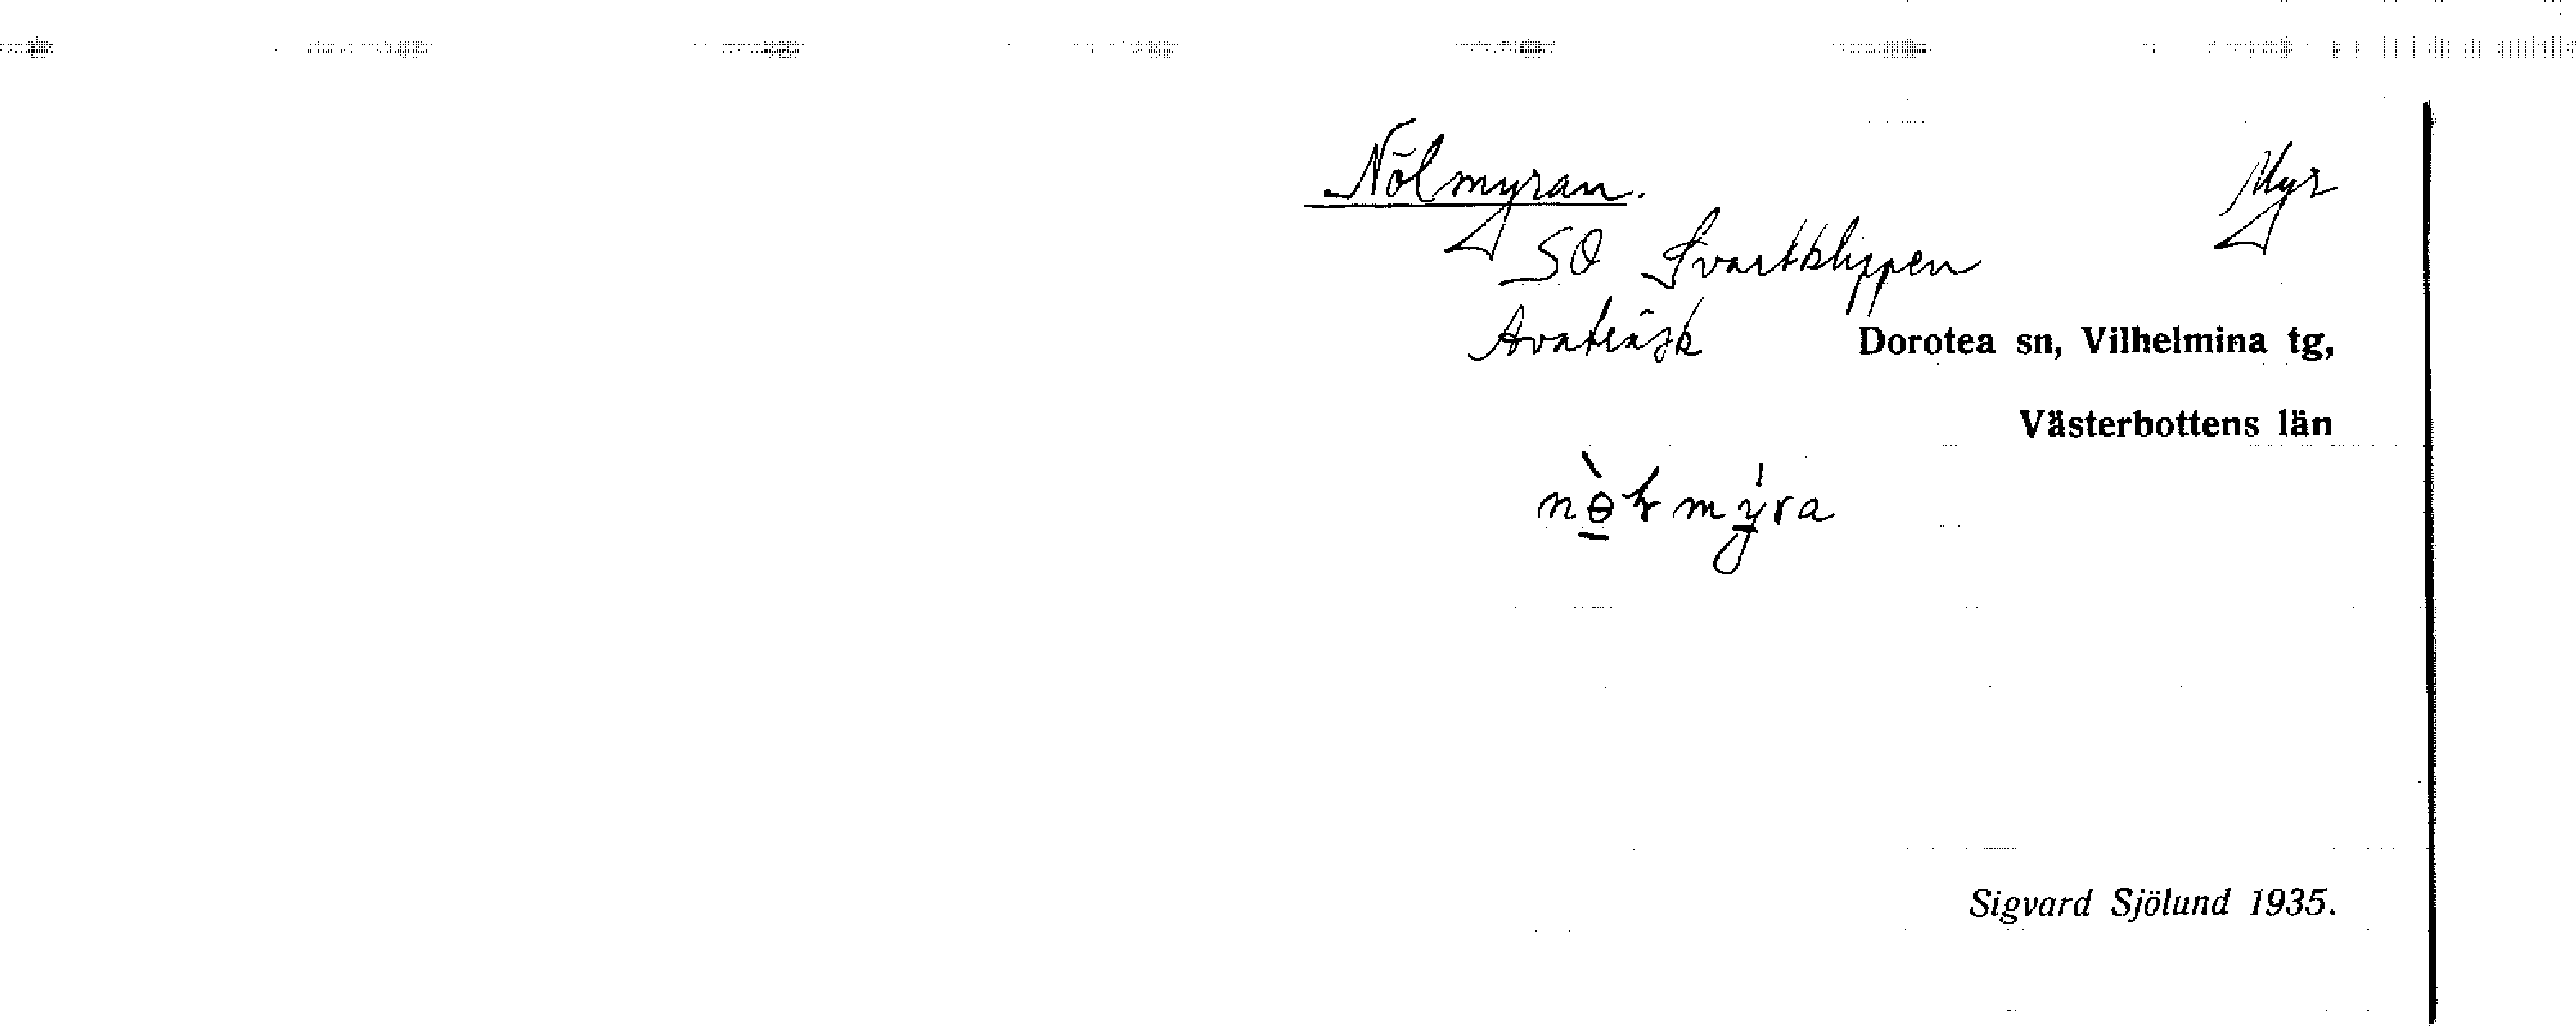 Nölmyran. Myr
SO Svartklippen
Avaträsk Dorotea sn, Vilhelmina tg,
Västerbottens län
Sigvard Sjölund 1935.